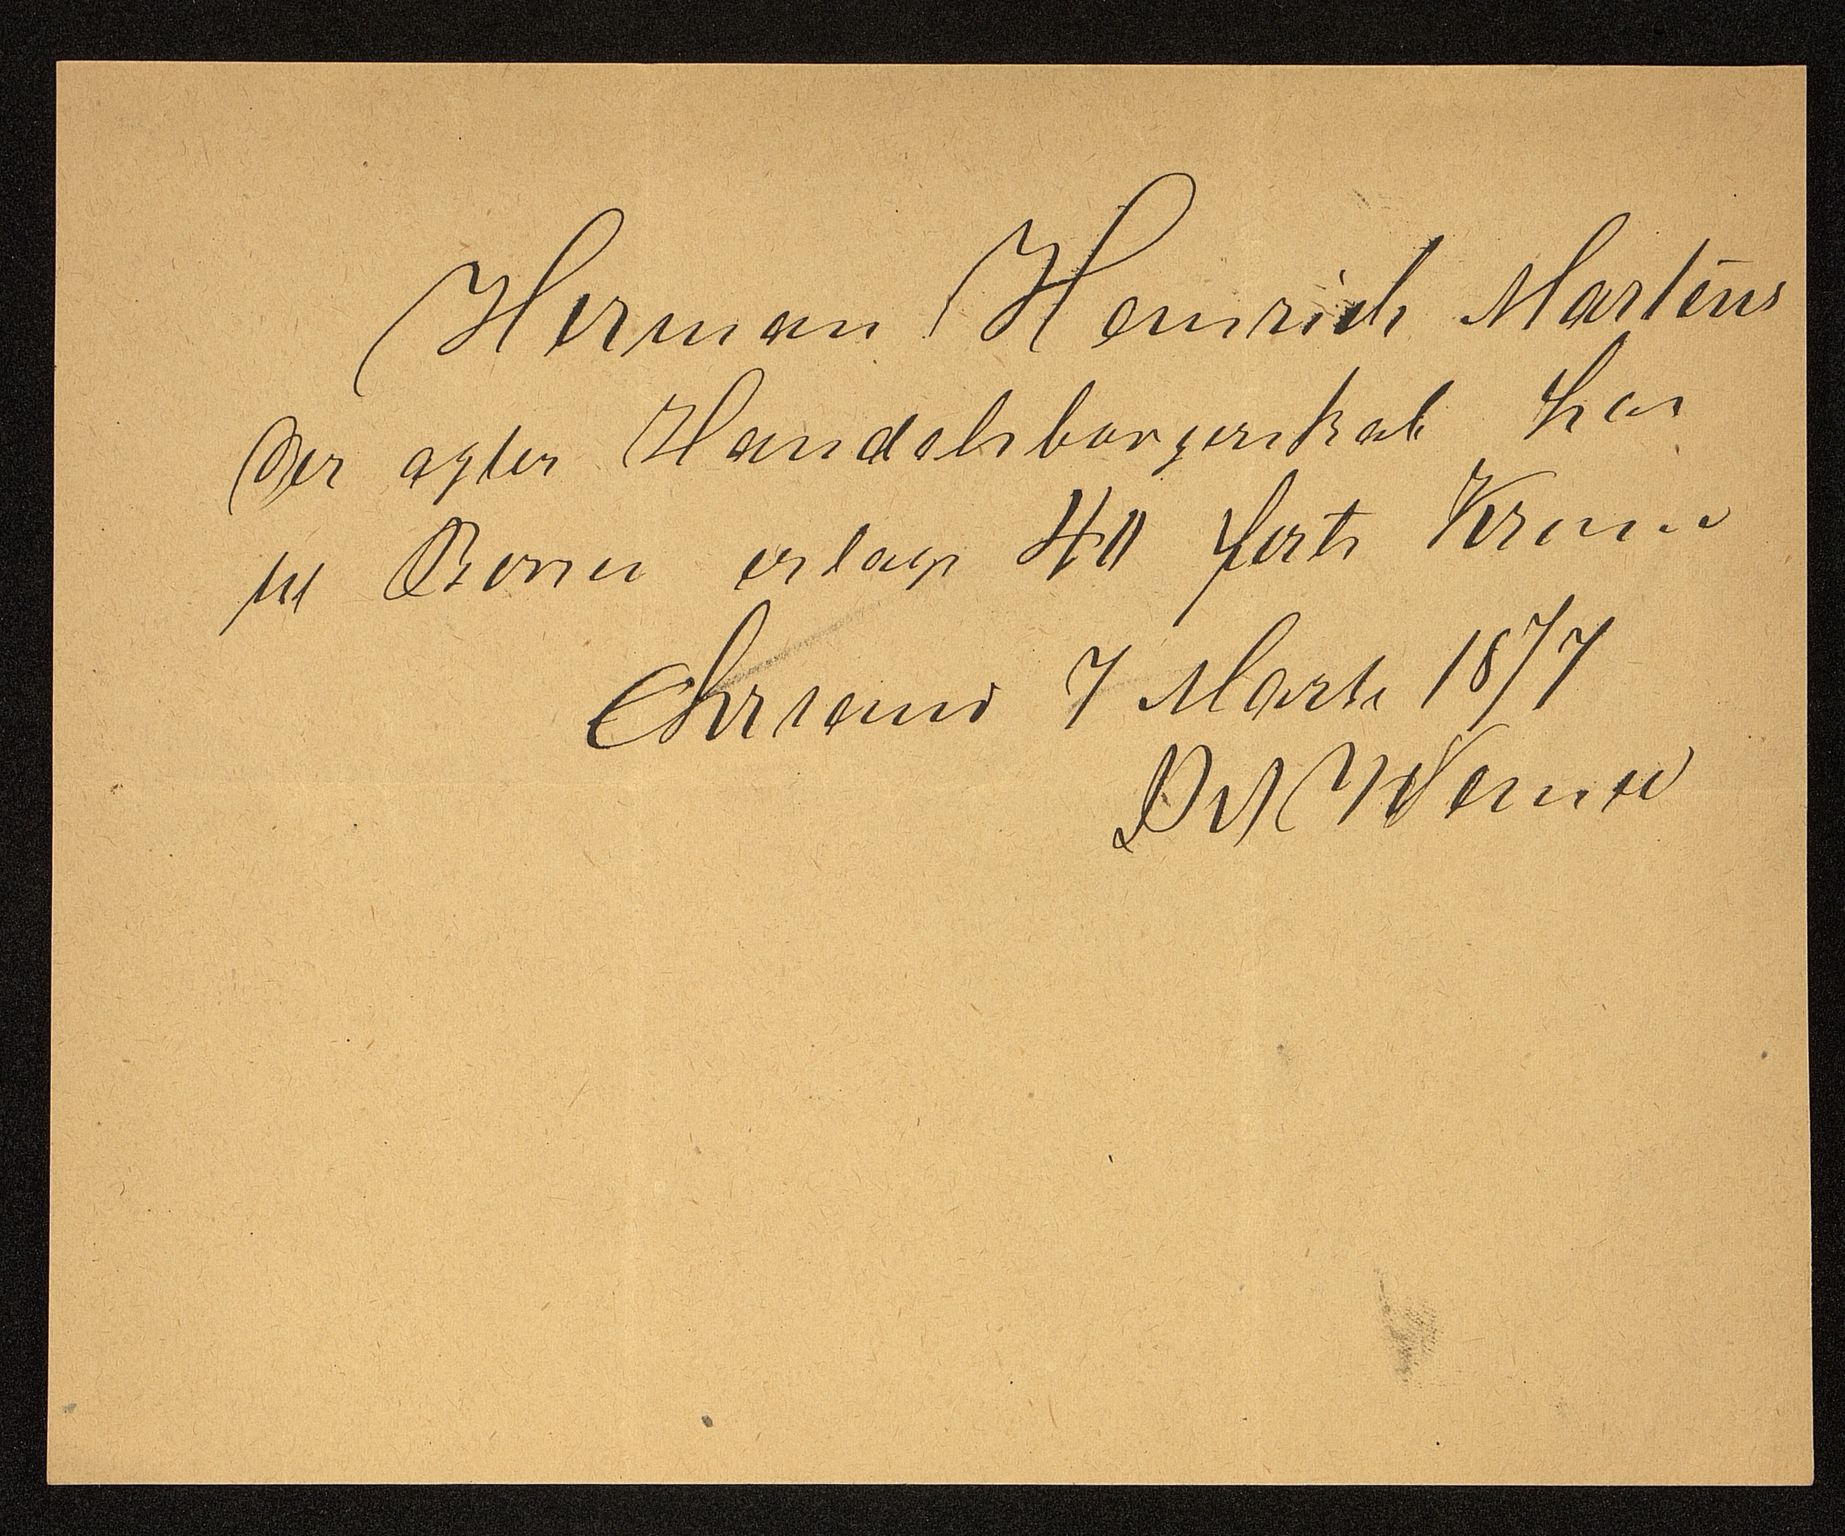 Herman Heinrich Martens
der agter Handelsborgerskab har
til Byen erlagt 40 førti Kroner
Chrsand 7 Marts 1877